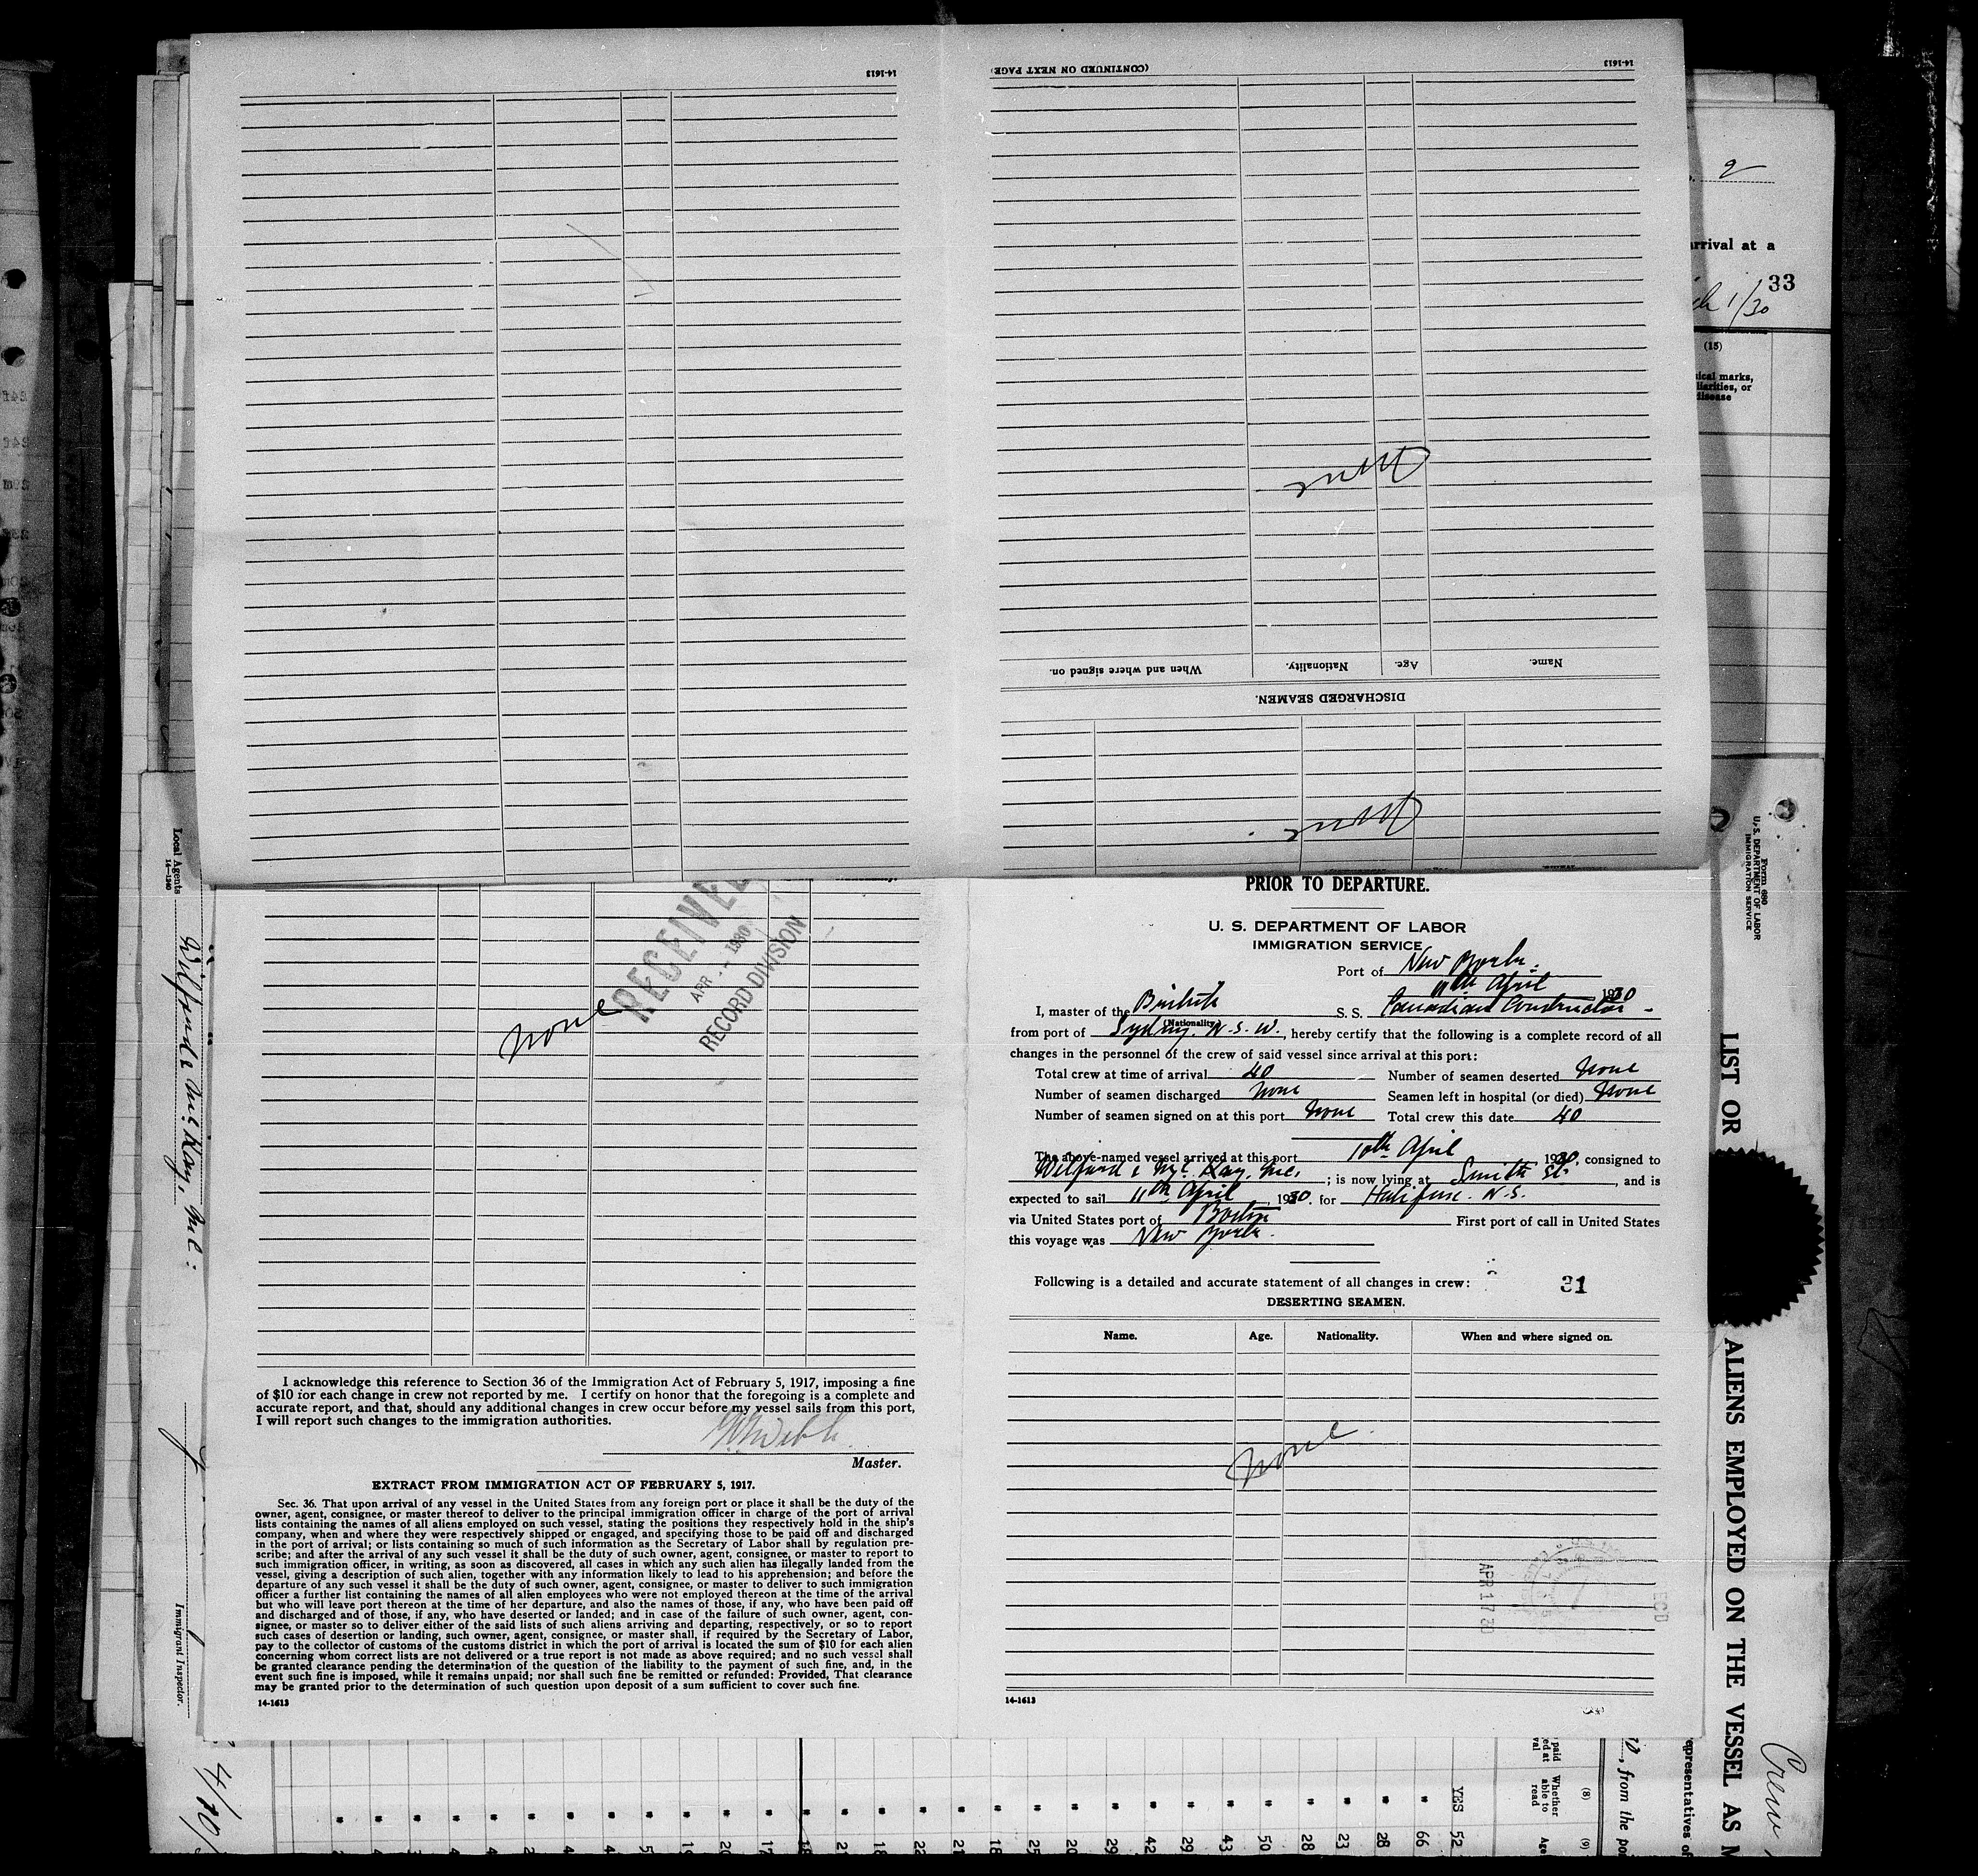 14-1613
(CONTINUED ON NEXT PAGE)
14-1613
Name.
Age.
Nationality.
When and where signed on.
DISCHARGED SEAMEN.
None
None
2
arrival at a
33
1/30
(15)
ical marks,
liarities, or
disease
Form 680
U. S. DEPARTMENT OF LABOR
IMMIGRATION SERVICE
LIST OR
ALIENS EMPLOYED ON THE VESSEL AS M
Crew
Local Agents
14-1240
Immigrant Inspector.
4/10/
RECEIVE
APR - 1930
RECORD DIVISION
none
I acknowledge this reference to Section 36 of the Immigration Act of February 5, 1917, imposing a fine
of $10 for each change in crew not reported by me. I certify on honor that the foregoing is a complete and
accurate report, and that, should any additional changes in crew occur before my vessel sails from this port,
I will report such changes to the immigration authorities.
Master.
EXTRACT FROM IMMIGRATION ACT OF FEBRUARY 5, 1917.
Sec. 36. That upon arrival of any vessel in the United States from any foreign port or place it shall be the duty of the
owner, agent, consignee, or master thereof to deliver to the principal immigration officer in charge of the port of arrival
lists containing the names of all aliens employed on such vessel, stating the positions they respectively hold in the ship's
company, when and where they were respectively shipped or engaged, and specifying those to be paid off and discharged
in the port of arrival; or lists containing so much of such information as the Secretary of Labor shall by regulation pre-
scribe; and after the arrival of any such vessel it shall be the duty of such owner, agent, consignee, or master to report to
such immigration officer, in writing, as soon as discovered, all cases in which any such alien has illegally landed from the
vessel, giving a description of such alien, together with any information likely to lead to his apprehension; and before the
departure of any such vessel it shall be the duty of such owner, agent, consignee, or master to deliver to such immigration
officer a further list containing the names of all alien employees who were not employed thereon at the time of the arrival
but who will leave port thereon at the time of her departure, and also the names of those, if any, who have been paid off
and discharged and of those, if any, who have deserted or landed; and in case of the failure of such owner, agent, con-
signee, or master so to deliver either of the said lists of such aliens arriving and departing, respectively, or so to report
such cases of desertion or landing, such owner, agent, consignee, or master shall, if required by the Secretary of Labor,
pay to the collector of customs of the customs district in which the port of arrival is located the sum of $10 for each alien
concerning whom correct lists are not delivered or a true report is not made as above required; and no such vessel shall
be granted clearance pending the determination of the question of the liability to the payment of such fine, and, in the
event such fine is imposed, while it remains unpaid; nor shall such fine be remitted or refunded: Provided, That clearance
may be granted prior to the determination of such question upon deposit of a sum sufficient to cover such fine.
14-1613
PRIOR TO DEPARTURE.
U. S. DEPARTMENT OF LABOR
IMMIGRATION SERVICE
Port of New York.
11th April 1930
I, master of the British S. S. Canadian Constructor
(Nationality)
from port of Sydney. N.S.W., hereby certify that the following is a complete record of all
changes in the personnel of the crew of said vessel since arrival at this port:
Total crew at time of arrival 40 Number of seamen deserted None
Number of seamen discharged None Seamen left in hospital (or died) None
Number of seamen signed on at this port None Total crew this date 40
The above-named vessel arrived at this port 10th April 1930, consigned to
Wilford & McKay, Inc. ; is now lying at Smith St. , and is
expected to sail 11th April, 1930. for Halifax. N.S.
via United States port of Boston First port of call in United States
this voyage was New York.
Following is a detailed and accurate statement of all changes in crew: 31
DESERTING SEAMEN.
Name. Age. Nationality. When and where signed on.
none
APR 17 30
14-1613
(8)
Whether able to read
(9)
Age
YES 52
66
28
23
28
50
43
29
42
29
20
25
18
21
22
18
21
, from the po
epresentatives of